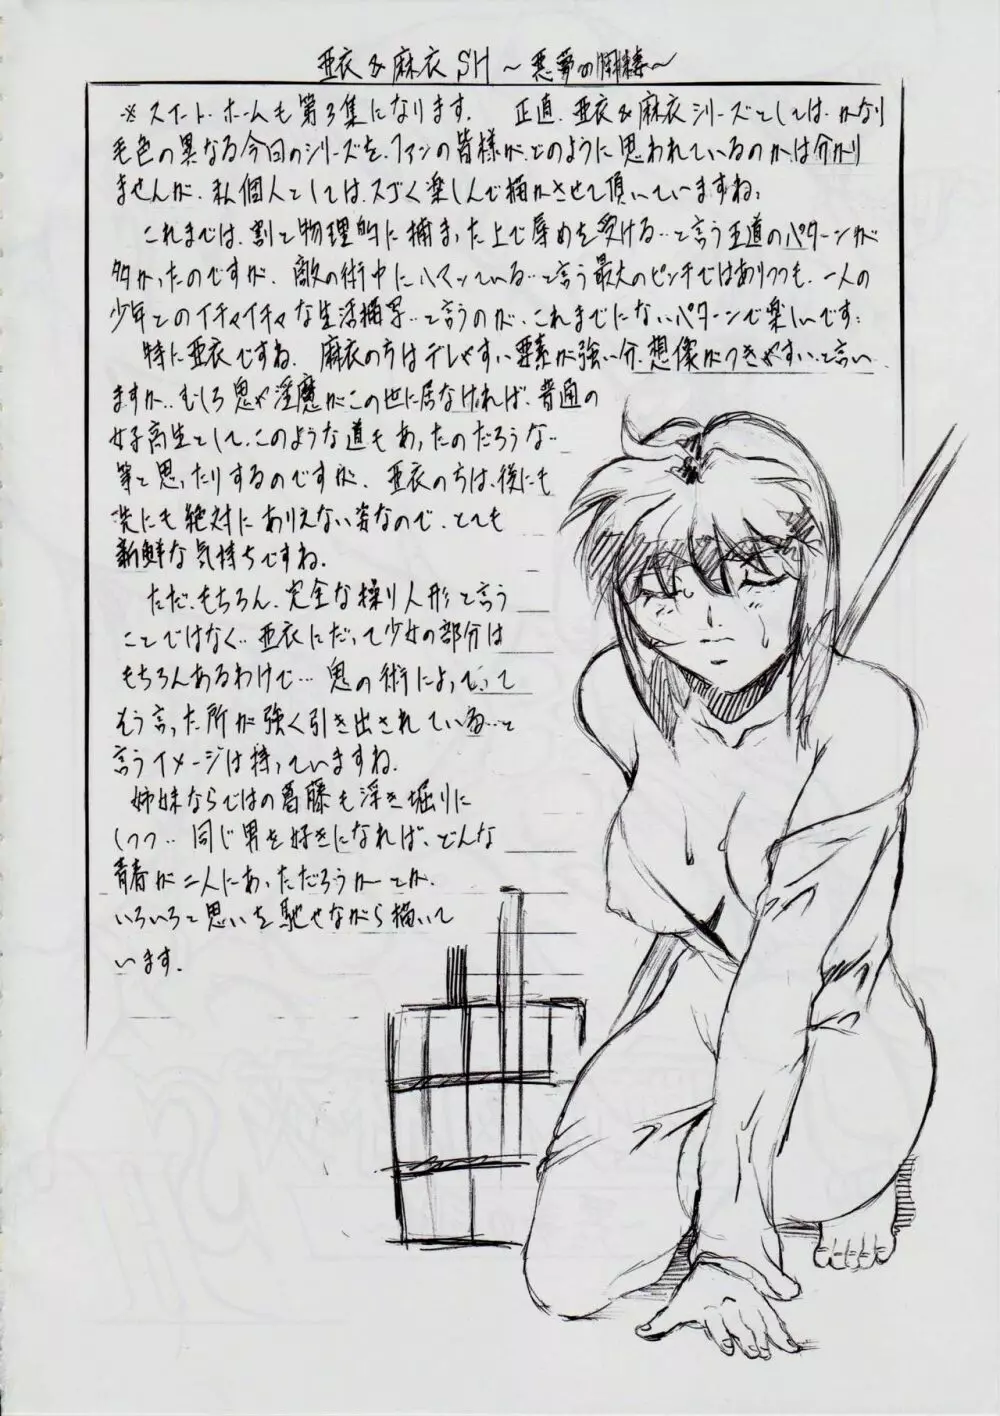 亜衣&麻衣SH～悪夢の開棲～
※スイート・ホームも第3集になります。 正直、亜衣&麻衣シリーズとしては、かなり
毛色の異なる今回のシリーズを、ファンの皆様が、どのように思われているのかは分かり
ませんが、私個人としては、スゴく楽しんで描かさせて頂いていますね。
これまでは、割と物理的に捕まった上で辱めを受ける…と言う王道のパターンが
多かったのですが、敵の術中にハマッている…と言う最大のピンチではありつつも、一人の
少年とのイチャイチャな生活描写…と言うのが、これまでにないパターンで楽しいです。
特に亜衣ですね。麻衣の方はデレやすい要素が強い分、想像がつきやすい、と言い
ますか…むしろ鬼や淫魔がこの世に居なければ、普通の
女子高生として、このような道もあったのだろうな…
等と思ったりするのですが、亜衣の方は、後にも
先にも絶対にありえない姿なので、とても
新鮮な気持ちですね。
ただ、もちろん、完全な操り人形と言う
ことではなく…亜衣にだって少女の部分は
もちろんあるわけで…鬼の術によって、
そう言った所が強く引き出されている…と
言うイメージは持っていますね。
姉妹ならではの葛藤も浮き堀りに
しつつ…同じ男を好きになれば、どんな
青春が二人にあっただろうか…とか、
いろいろと思いを馳せながら描いて
います。